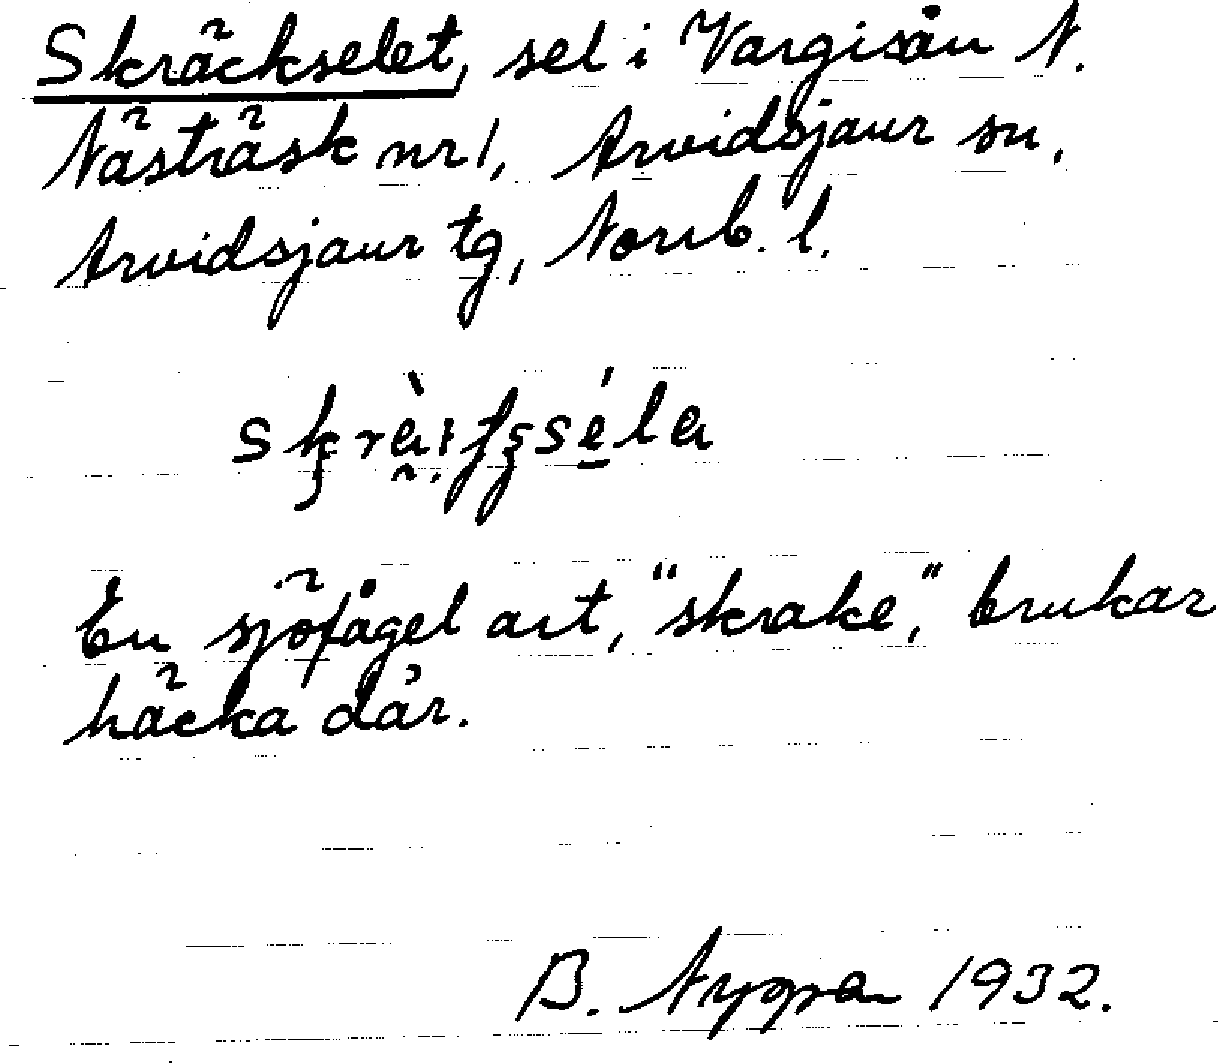 Skräckselet, sel i Vargisån N.
Nästräsk nr 1, Arvidsjaur sn,
Arvidsjaur tg, Norrb. l.
En sjöfågel art, "skrake", brukar
häcka där.
B. 1932.